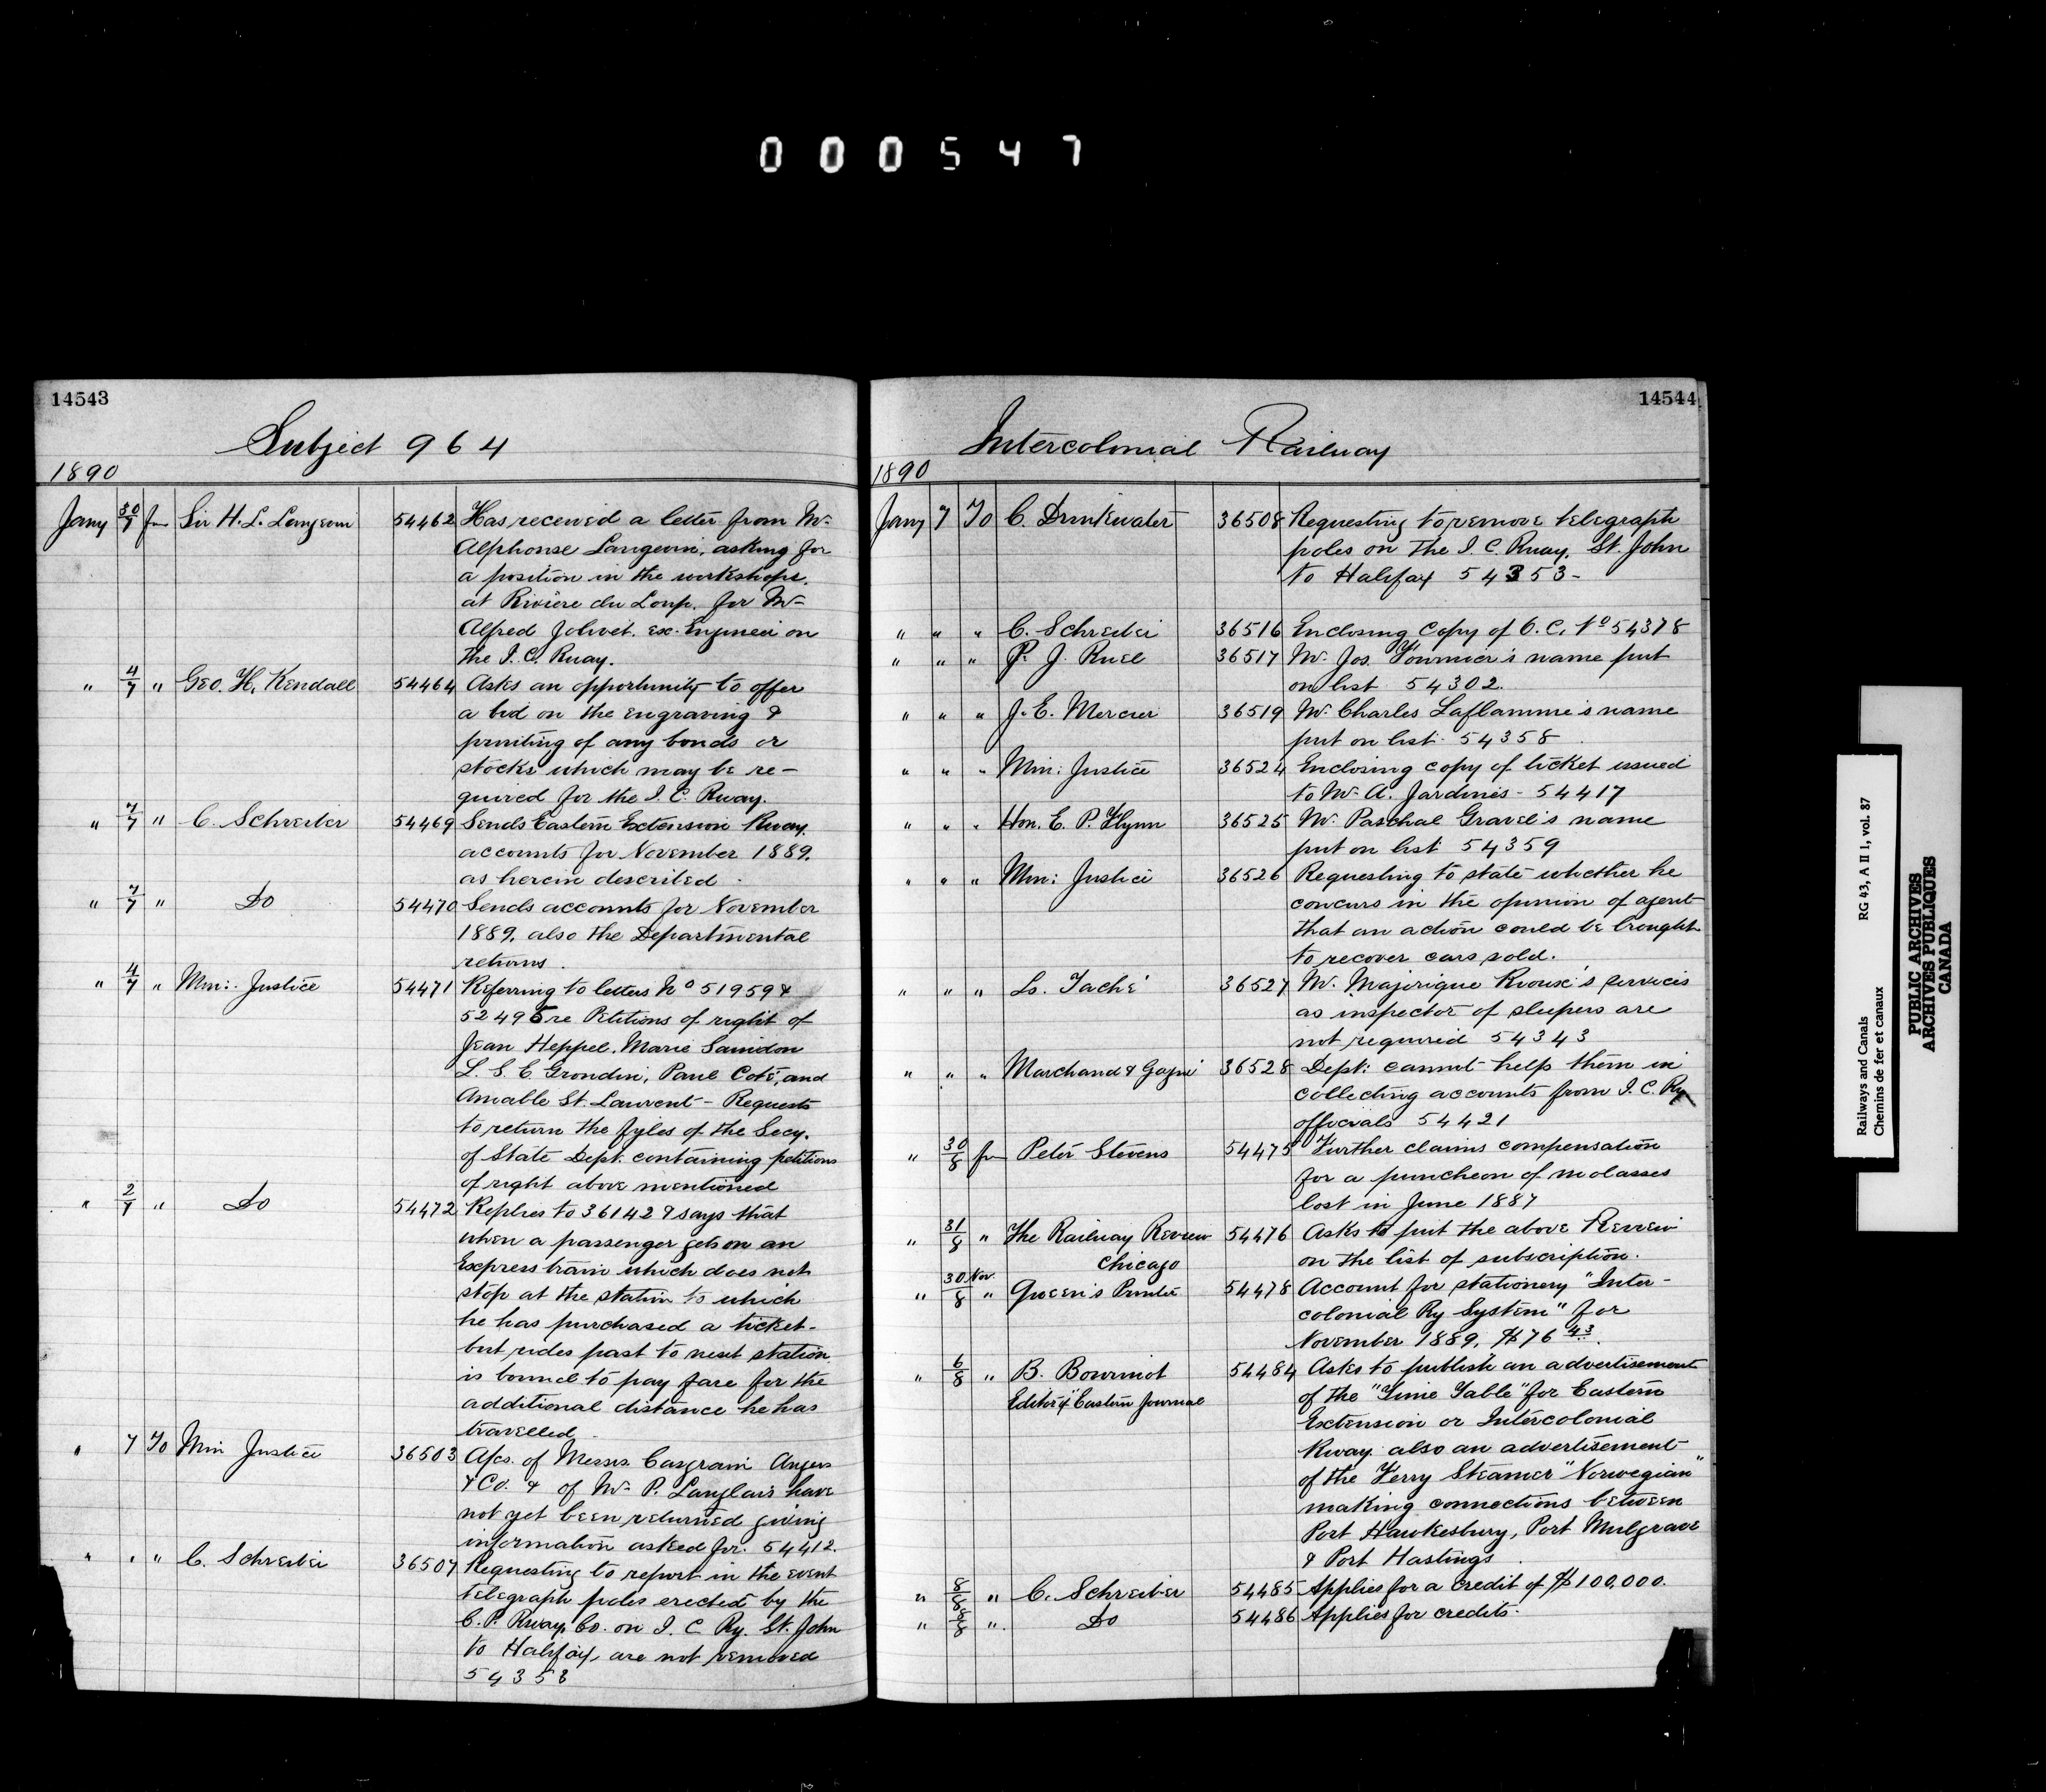 000547
14543
Subject 964
1890
Jany 30/7 fm Sir H. L. Langevin 54462 Has received a letter from Mr.
Alphonse Langevin, asking for
a position in the workshops.
at Rivière du Loup. for Mr
Alfred Jolivet. ex. Engineer on
the I. C. Rway.
" 4/7 " Geo. H. Kendall 54464 Asks an opportunity to offer
a bid on the engraving &
printing of any bonds or
stocks which may be re-
quired for the I. C. Rway.
" 7/7 " C. Schreiber 54469 Sends Eastern Extension Rway.
accounts for November 1889.
as herein described.
" 7/7 " Do 54470 Sends accounts for November
1889, also the Departmental
returns.
" 4/7 " Min: Justice 54471 Referring to letters No 51959 &
52495 re Petitions of right of
Jean Heppel, Marie Sanidon
L. S. C. Grondin, Paul Coté, and
Amable St. Laurent - Requests
to return the fyles of the Secy.
of State Dept. containing petitions
of right above mentioned
" 2/7 " Do 54472 Replies to 36142 & says that
when a passenger gets on an
Express train which does not
stop at the station to which
he has purchased a ticket-
but rides past to next station
is bound to pay fare for the
additional distance he has
travelled.
" 7 To Min Justice 36503 A/cs. of Messrs. Casgrain Angers
& Co. & of Mr. P. Langlais have
not yet been returned giving
information asked for. 54412.
" " " C. Schreiber 36507 Requesting to report in the event
telegraph poles erected by the
C. P. Rway. Co. on I. C. Ry. St. John
to Halifax, are not removed
54353
14544
Intercolonial Railway
1890
Jany 7 To C. Drinkwater 36508 Requesting to remove telegraph
poles on the I. C. Rway. St. John
to Halifax 54353-
" " " C. Schreiber 36516 Enclosing copy of O.C. No 54378
" " " P. J. Ruel 36517 Mr. Jos. Fournier's name put
on list 54302.
" " " J. E. Mercier 36519 Mr. Charles Laflamme's name
put on list. 54358.
" " " Min: Justice 36524 Enclosing copy of ticket issued
to Mr. A. Jardine's - 54417
" " " Hon. E. P. Flynn 36525 Mr. Paschal Gravel's name
put on list 54359
" " " Min: Justice 36526 Requesting to state whether he
concurs in the opinion of agent
that an action could be brought
to recover cars sold.
" " " Ls. Taché 36527 Mr. Majorique Rioux's services
as inspector of sleepers are
not required 54343
" " " Marchand & Gagné 36528 Dept: cannot help them in
collecting accounts from I. C. Ry
officials 54421
" 30/8 fm Peter Stevens 54475 Further claims compensation
for a puncheon of molasses
lost in June 1887
" 31/8 " The Railway Review 54476 Asks to put the above Review
Chicago on the list of subscription.
" 30 Nov./8 " Queen's Printer 54478 Account for stationery "Inter-
colonial Ry System" for
November 1889, $76 43.
" 6/8 " B. Bourinot 54484 Asks to publish an advertisement
Editor of "Eastern Journal of the "Time Table" for Eastern
Extension or Intercolonial
Rway. also an advertisement
of the Ferry Steamer "Norwegian"
making connections between
Port Hawkesbury, Port Mulgrave
& Port Hastings.
" 8/8 " C. Schreiber 54485 Applies for a credit of $100,000.
" 8/8 " Do 54486 Applies for credits.
Railways and Canals RG 43, A II 1, vol. 87
Chemins de fer et canaux
PUBLIC ARCHIVES
ARCHIVES PUBLIQUES
CANADA